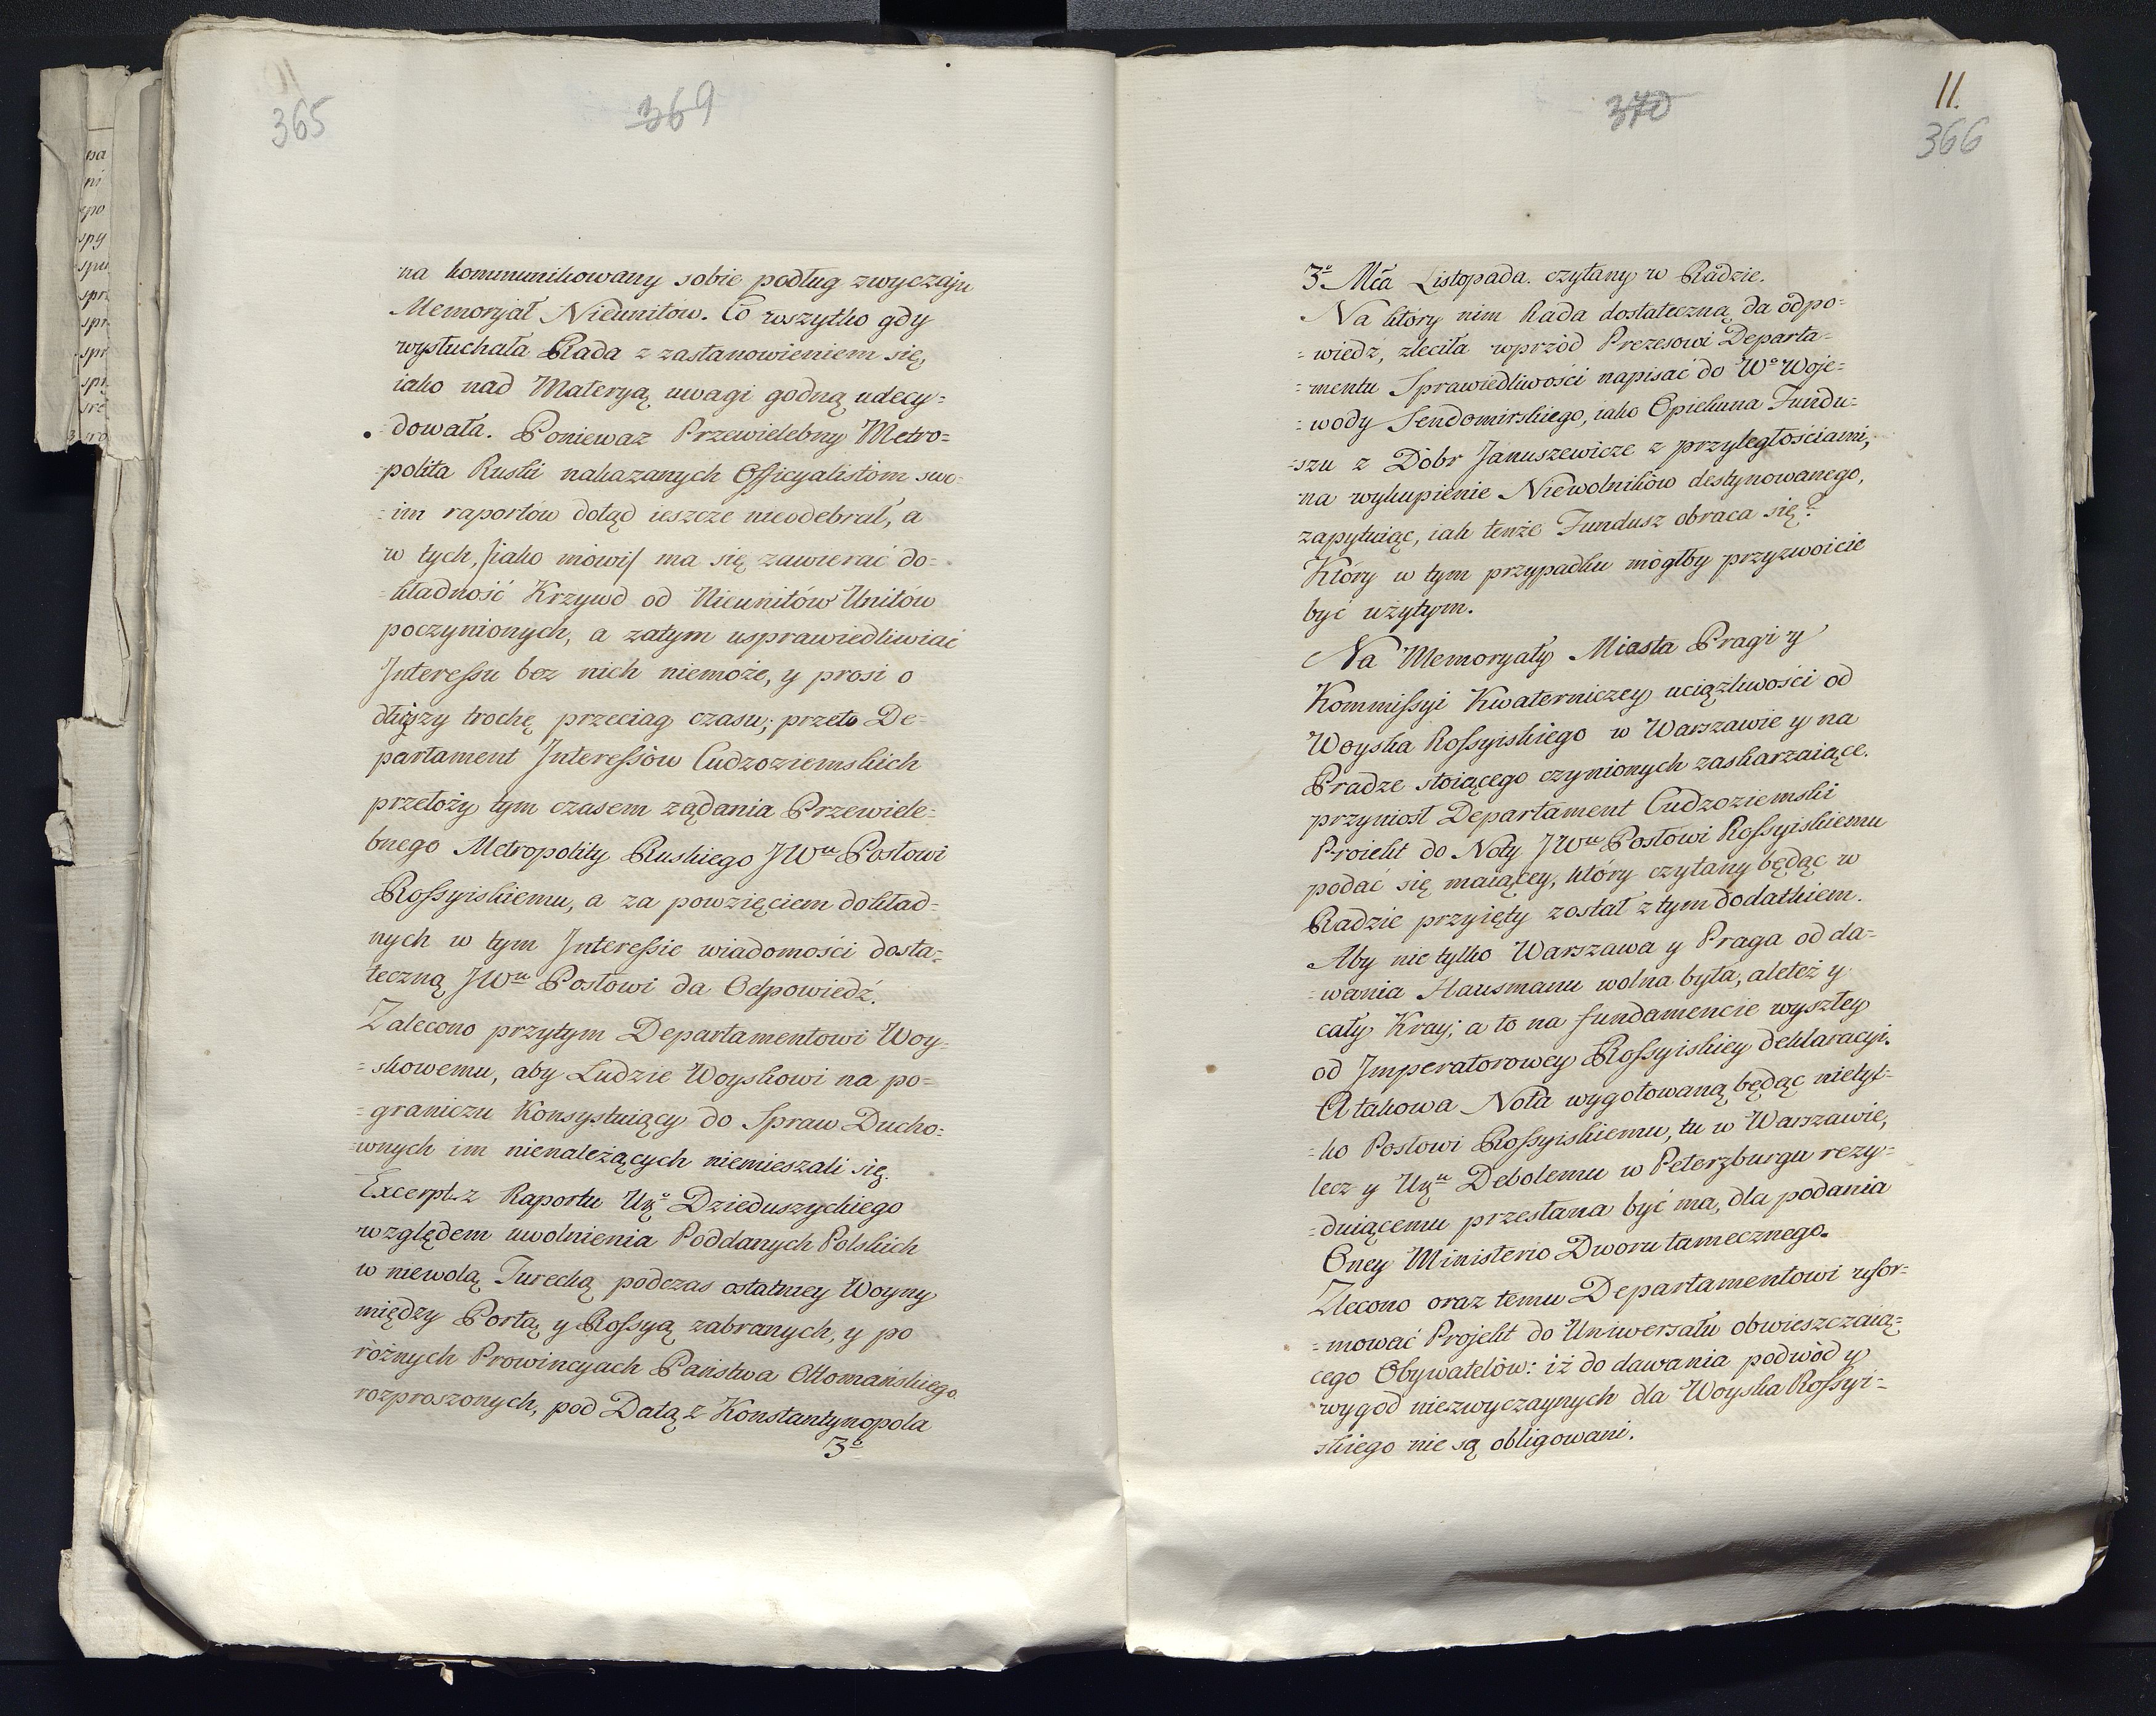 365
369
na kommunikowany sobie podług zwyczaju
Memoryał Nieunitow. Co wszytko gdy
wysłuchała Rada z zastanowieniem się,
iako nad Materyą uwagi godną udecy=
dowała. Ponieważ Przewielebny Metro=
polita Ruski nakazanych Officyalistom swo=
=im raportów dotąd ieszcze nieodebrał, a
w tych, /iako mówi/ ma się zawierać do=
kładność Krzywd od Nieunitów Unitów
poczynionych, a zatym usprawiedliwiać
Interessu bez nich niemoże, y prosi o
dłuższy trochę przeciąg czasu; przeto De=
partament Interessów Cudzoziemskich
przełoży tym czasem ządania Przewiele=
bnego Metropolity Ruskiego JWu Posłowi
Rossyiskiemu, a za powzięciem dokład=
nych w tym Interessie wiadomości dosta=
teczną JWu Posłowi da Odpowiedź.
Zalecono przytym Departamentowi Woy=
=skowemu, aby Ludzie Woyskowi na po=
=graniczu Konsystuiący do Spraw Ducho=
=wnych im nienależących niemieszali się.
Excerpt z Raportu Ugo Dzieduszyckiego
względem uwolnienia Poddanych Polskich
w niewolą Turecką podczas ostatniey Woyny
między Portą y Rossyą zabranych, y po
różnych Prowincyach Państwa Ottomańskiego
rozproszonych, pod Datą z Konstantynopola
3o
370
11.
366
3o Mca Listopada. czytany w Radzie.
Na który nim Rada dostateczną da odpo=
=wiedź, zleciła wprzód Prezesowi Departa=
=mentu Sprawiedliwości napisać do Wo Woje=
=wody Sendomirskiego, iako Opiekuna Fundu=
=szu z Dobr Januszewicze z przyległościami,
na wykupienie Niewolników destynowanego,
zapytuiąc, iak tenże Fundusz obraca się?
Który w tym przypadku mógłby przyzwoicie
być użytym.
Na Memoryały Miasta Pragi y
Kommissyi Kwaterniczey uciążliwości od
Woyska Rossyiskiego w Warszawie y na
Pradze stoiącego czynionych zaskarzaiące.
przyniosł Departament Cudzoziemski
Proiekt do Noty JWu Posłowi Rossyiskiemu
podać się maiącey, który czytany będąc w
Radzie przyięty został z tym dodatkiem.
Aby nie tylko Warszawa y Praga od da=
=wania Hausmanu wolna była, aleteż y
cały Kray; a to na fundamencie wyszłey
od Imperatorowey Rossyiskiey deklaracyi.
A takowa Nota wygotowaną będąc nietyl=
=ko Posłowi Rossyiskiemu, tu w Warszawie,
lecz y Ugu Debolemu w Peterzburgu rezy=
=duiącemu przesłana być ma, dla podania
Oney Ministerio Dworu tamecznego.
Zlecono oraz temu Departamentowi ufor=
=mować Projekt do Uniwersału obwieszczaią=
cego Obywatelów: iż do dawania podwód y
wygód niezwyczaynych dla Woyska Rossyi=
skiego nie są obligowani.